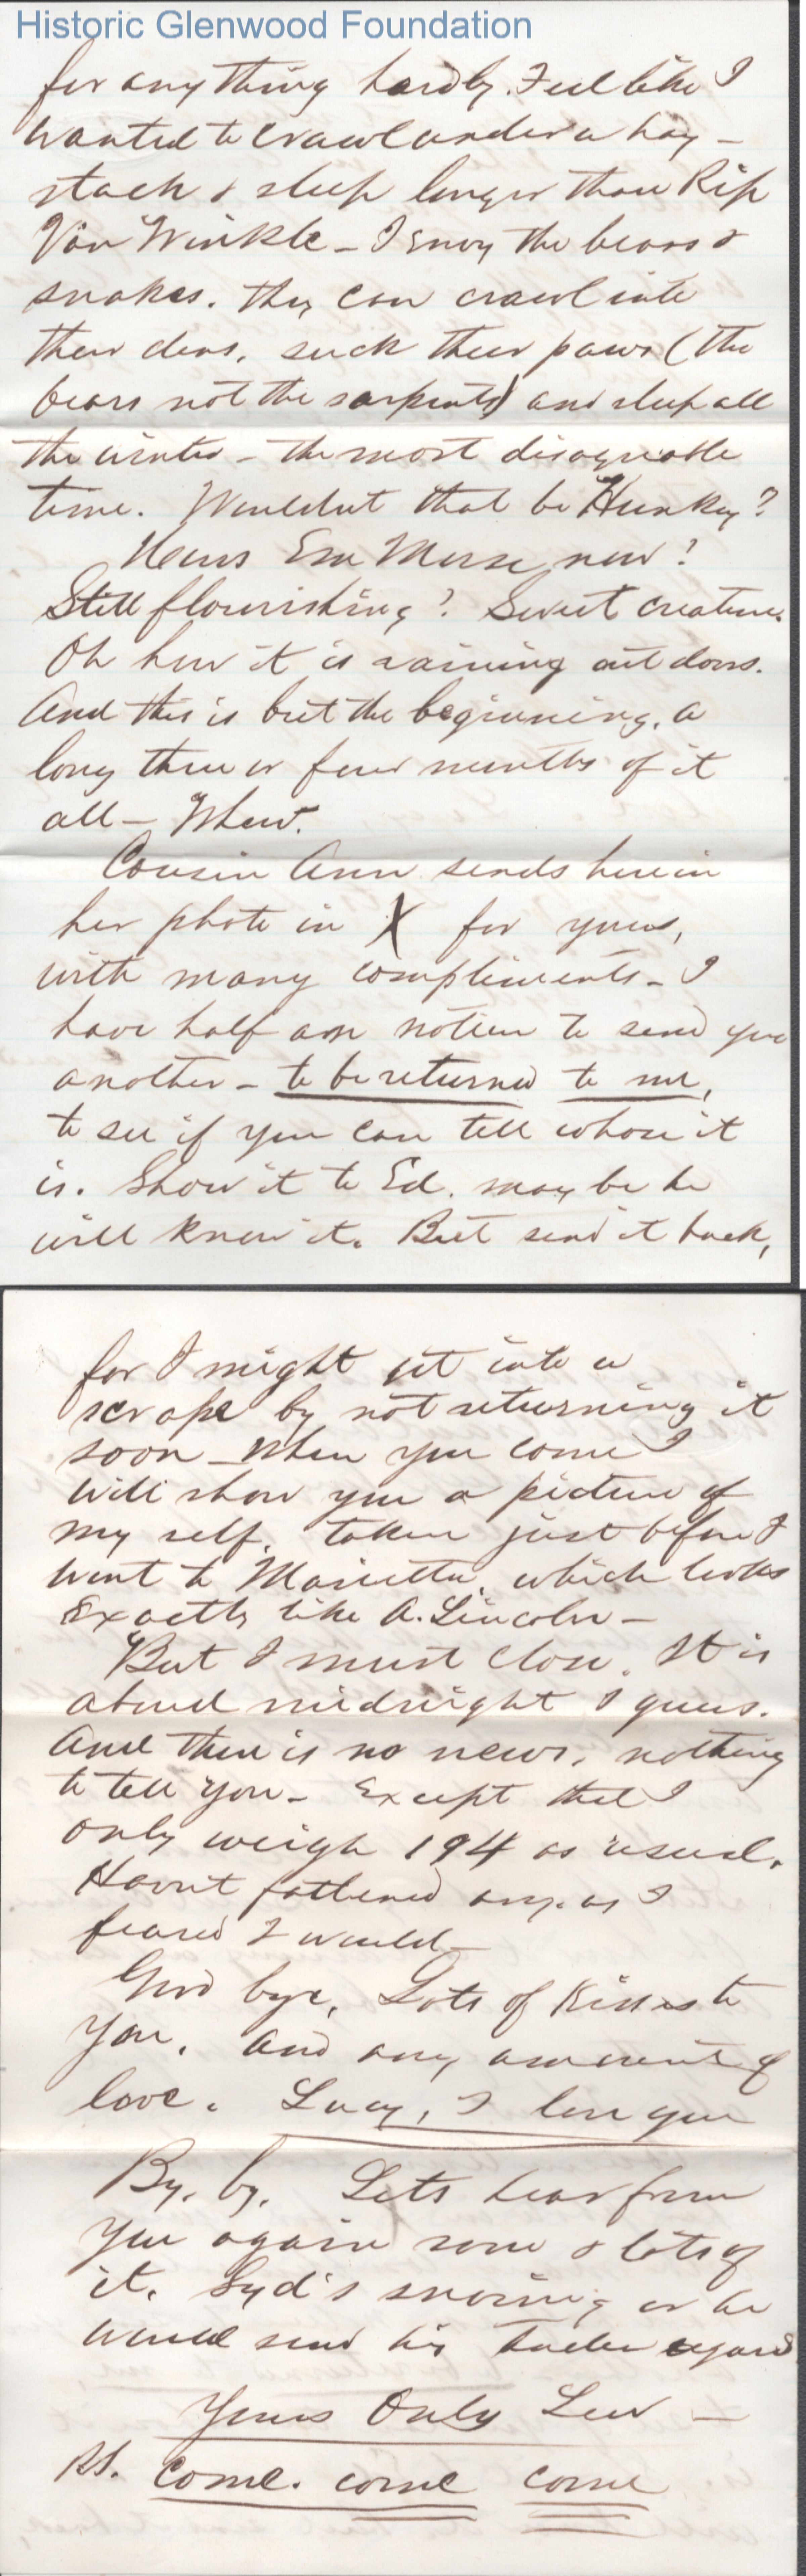 Historic Glenwood Foundation
for any thing hardly. Feel like I
wanted to crawl under a hay-
stack & sleep longer than Rip
Van Winkle - I envy the bears &
snakes. they can crawl into
their dens, suck their paws (the
bears not the sarpents) and sleep all
the winter - the most disagreeable
time. Wouldnt that be Hunky?
Hows Em Morse now?
Still flourishing? Sweet creature.
Oh how it is raining out doors.
And this is but the beginning. a
long three or four months of it
all - Whew.
Cousin Ann sends herein
her photo in X for yours,
with many compliments - I
have half an notion to send you
another - to be returned to me,
to see if you can tell whose it
is. Show it to Ed. may be he
will know it. But send it back,
for I might get into a
scrape by not returning it
soon - When you come I
will show you a picture of
my self. taken just before I
went to Marietta, which looks
Exactly like A. Lincoln -
But I must close. It is
about midnight I guess.
And there is no news, nothing
to tell you - Except that I
only weigh 194 as usual.
Havnt fattened any. as I
feared I would -
Good bye, Lots of Kisses to
you. and any amount of
love. Lucy, I love you
By. by. Lets hear from
you again soon & lots of
it. Syd's snoring or he
would send his regards
Yours Only Lew -
P.S. Come. come come